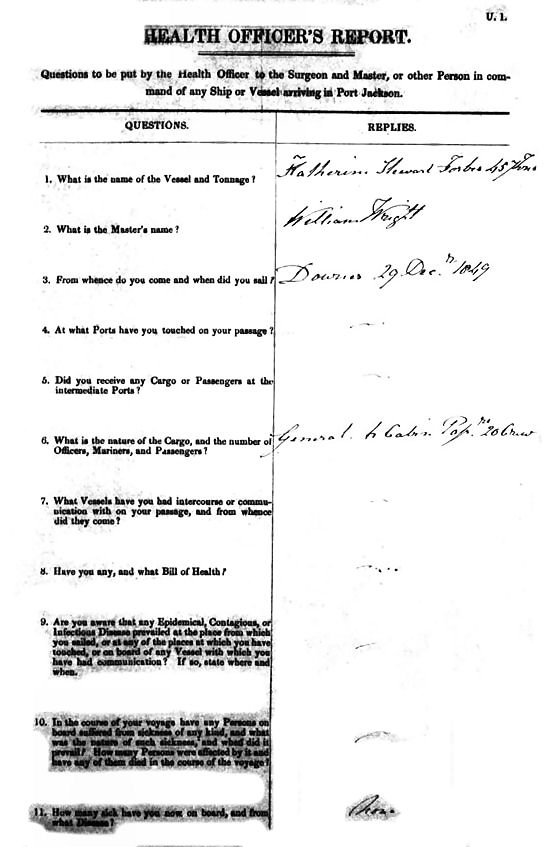 U. 1.
HEALTH OFFICER'S REPORT.
Questions to be put by the Health Officer to the Surgeon and Master, or other Person in com-
mand of any Ship or Vessel arriving in Port Jackson.
QUESTIONS.
REPLIES.
1. What is the name of the Vessel and Tonnage?
Katherine Stewart Forbes 457 Tons
2. What is the Master's name?
William Wright
3. From whence do you come and when did you sail?
Downs 29 Decr 1849
4. At what Ports have you touched on your passage?
5. Did you receive any Cargo or Passengers at the
intermediate Ports?
6. What is the nature of the Cargo, and the number of
Officers, Mariners, and Passengers?
General Cabin 20 Crew
7. What Vessels have you had intercourse or commu-
nication with on your passage, and from whence
did they come?
8. Have you any, and what Bill of Health?
9. Are you aware that any Epidemical, Contagious, or
Infectious Disease prevailed at the place from which
you sailed, or at any of the places at which you have
touched, or on board of any Vessel with which you
have had communication? If so, state where and
when.
10. In the course of your voyage have any Persons on
board suffered from sickness of any kind, and what
was the nature of such sickness, and when did it
prevail? How many Persons were affected by it and
have any of them died in the course of the voyage?
11. How many sick have you now on board, and from
what Disease?
None